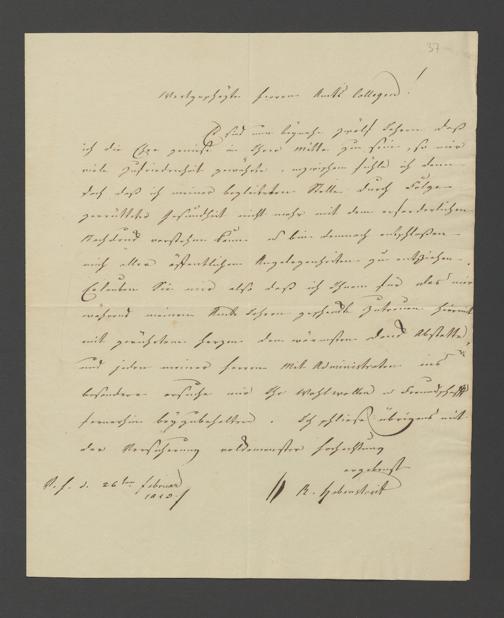 37
Werthgeschäzte Herren Amts Collegen!
Es sind nun beynahe zwölf Jahre, daß
ich die Ehre genieße in Ihrer Mitte zu sein, so mir
viele Zufriedenheit gewährte, inzwischen fühle ich denn
doch daß ich meiner begleiteten Stelle durch Folge
zerrütteter Gesundheit nicht mehr mit dem erforderlichen
Nachdruck vorstehen kann u bin demnach entschloßen
mich aller öffentlichen Angelegenheiten zu entziehen.
Erlauben Sie mir also daß ich Ihnen für das mir
während meinen Amts Jahren geschenkte Zutrauen hiermit
mit gerührtem Herzen den wärmsten Dank Abstatte,
und jeden meiner Herren Mit Administratoren ins
besondere ersuche mir Ihr Wohlwollen u Freundschaft
fernerhin beyzubehalten. Ich schließe übrigens mit
der Versicherung vollkommenster Hochachtung
ergebenst
26ten Februar